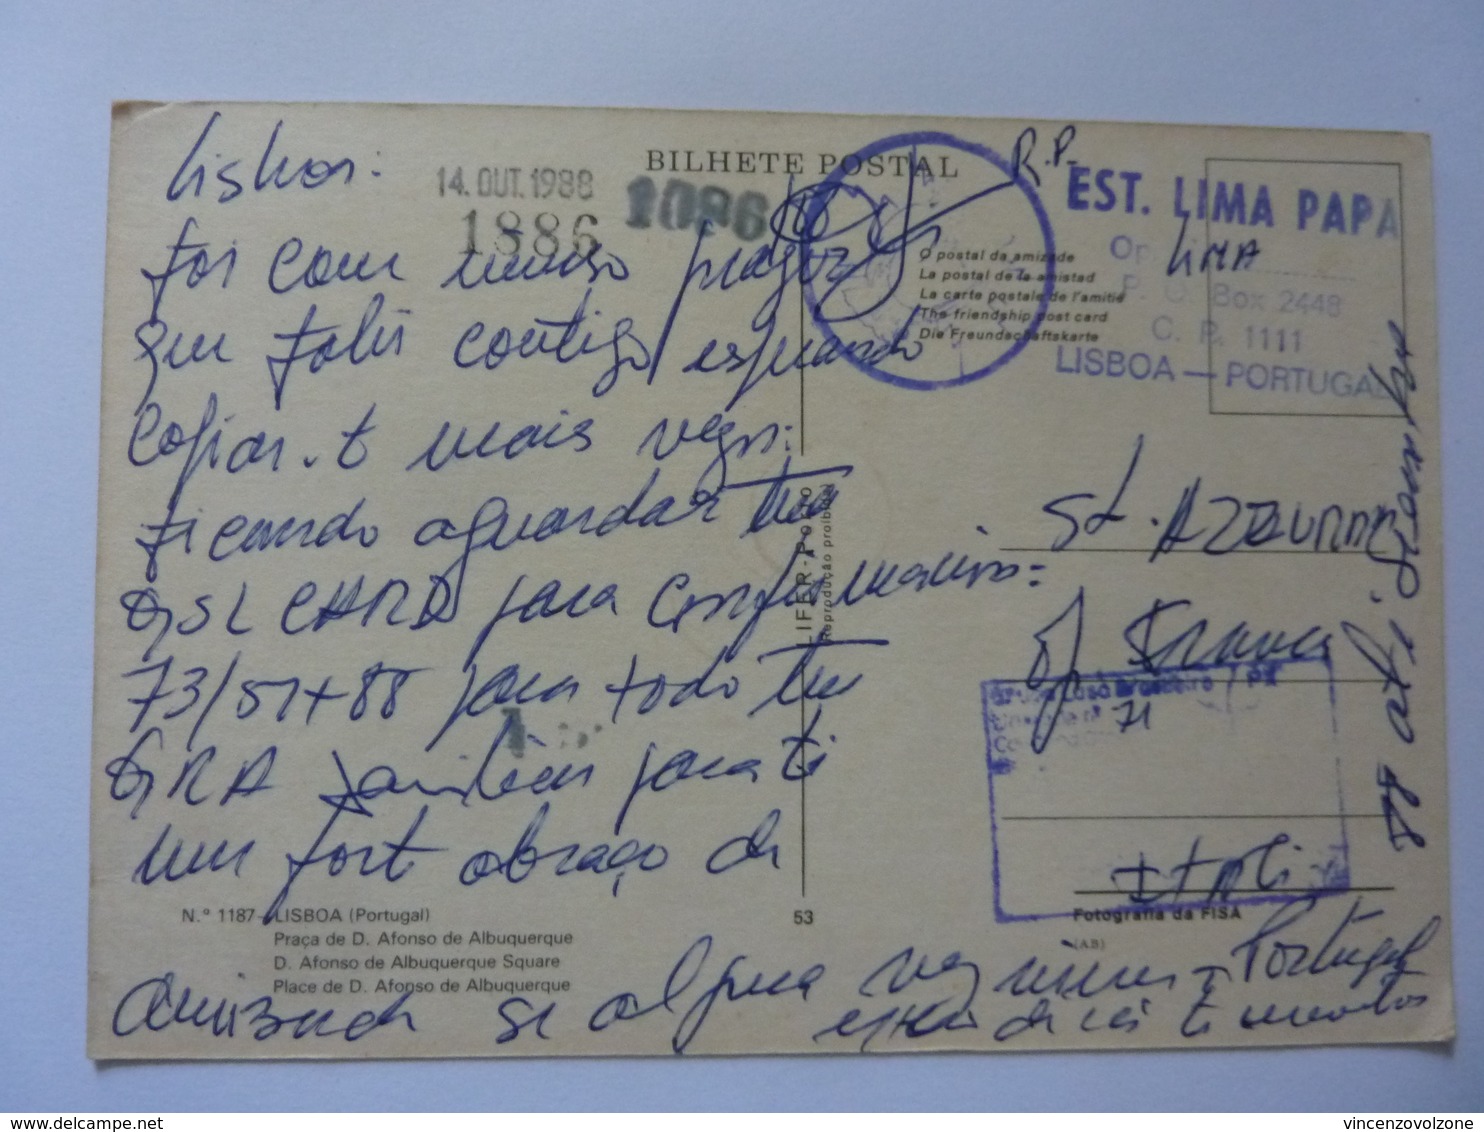 Lisboa:
14. OUT. 1988
1886
1886
BILHETE POSTAL
R.P.
EST. LIMA PAPA
Op. LIMA
P. O. Box 2448
C. P. 1111
LISBOA — PORTUGAL
O postal da amizade
La postal de la amistad
La carte postale de l'amitié
The friendship post card
Die Freundschaftskarte
foi com imenso prazer
que falei contigo esperando
copiar-t mais vezes:
ficando aguardar tua
QSL CARD para confirmação:
73/51+88 para todo teu
QRA familiar para ti
um forte abraço de
LIFER-PORTO
Reprodução proibida
St. AZZURRA
Op Franco
Luso Brasileiro
71
ITALI
N.º 1187 - LISBOA (Portugal)
Praça de D. Afonso de Albuquerque
D. Afonso de Albuquerque Square
Place de D. Afonso de Albuquerque
53
Fotografia da FISA
(AB)
amizade se alguma vez vieres a Portugal
88 ati
vincenzovolzone